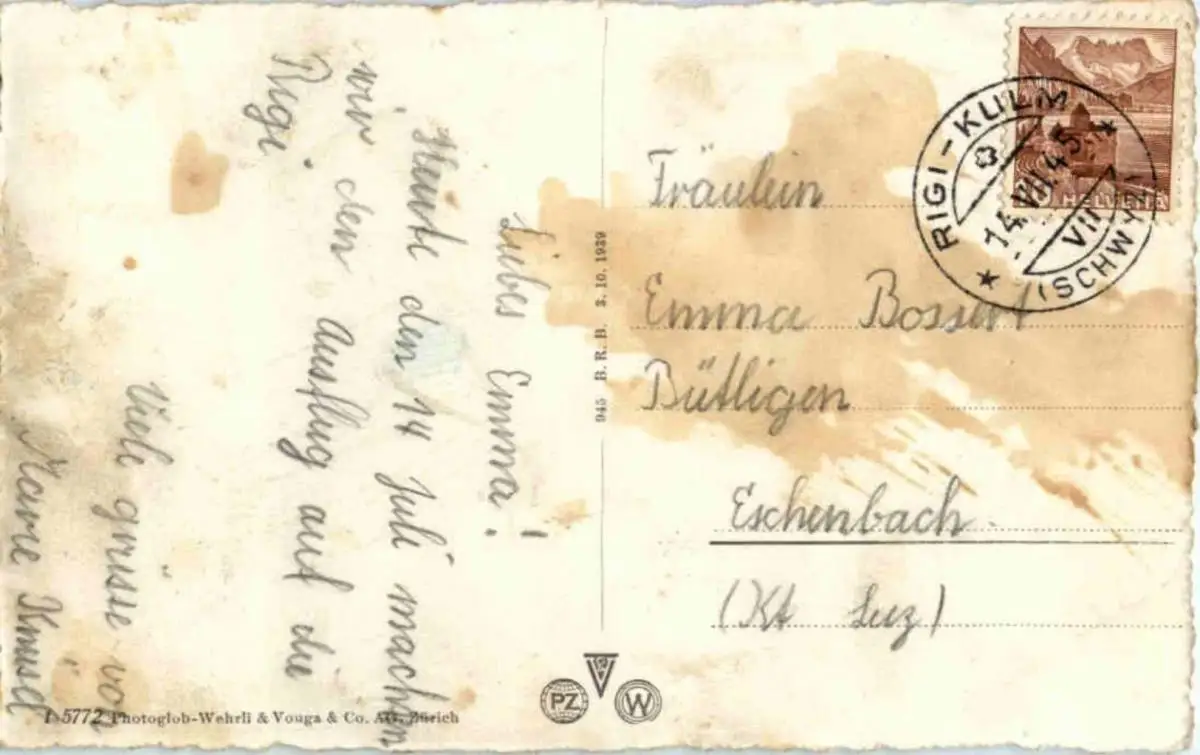 Liebes Emma!
Heute den 14 Juli machen
wir den Ausflug auf die
Rigi.
Viele grüsse von
Marie
Fräulein
Emma Bossert
Bütligen
Eschenbach
(Kt Luz)
RIGI-KULM
14.VII.45
VII
(SCHWYZ)
HELVETIA
945 B. R. B. 3. 10. 1939
PZ
W
5772 Photoglob-Wehrli & Vouga & Co. AG. Zürich